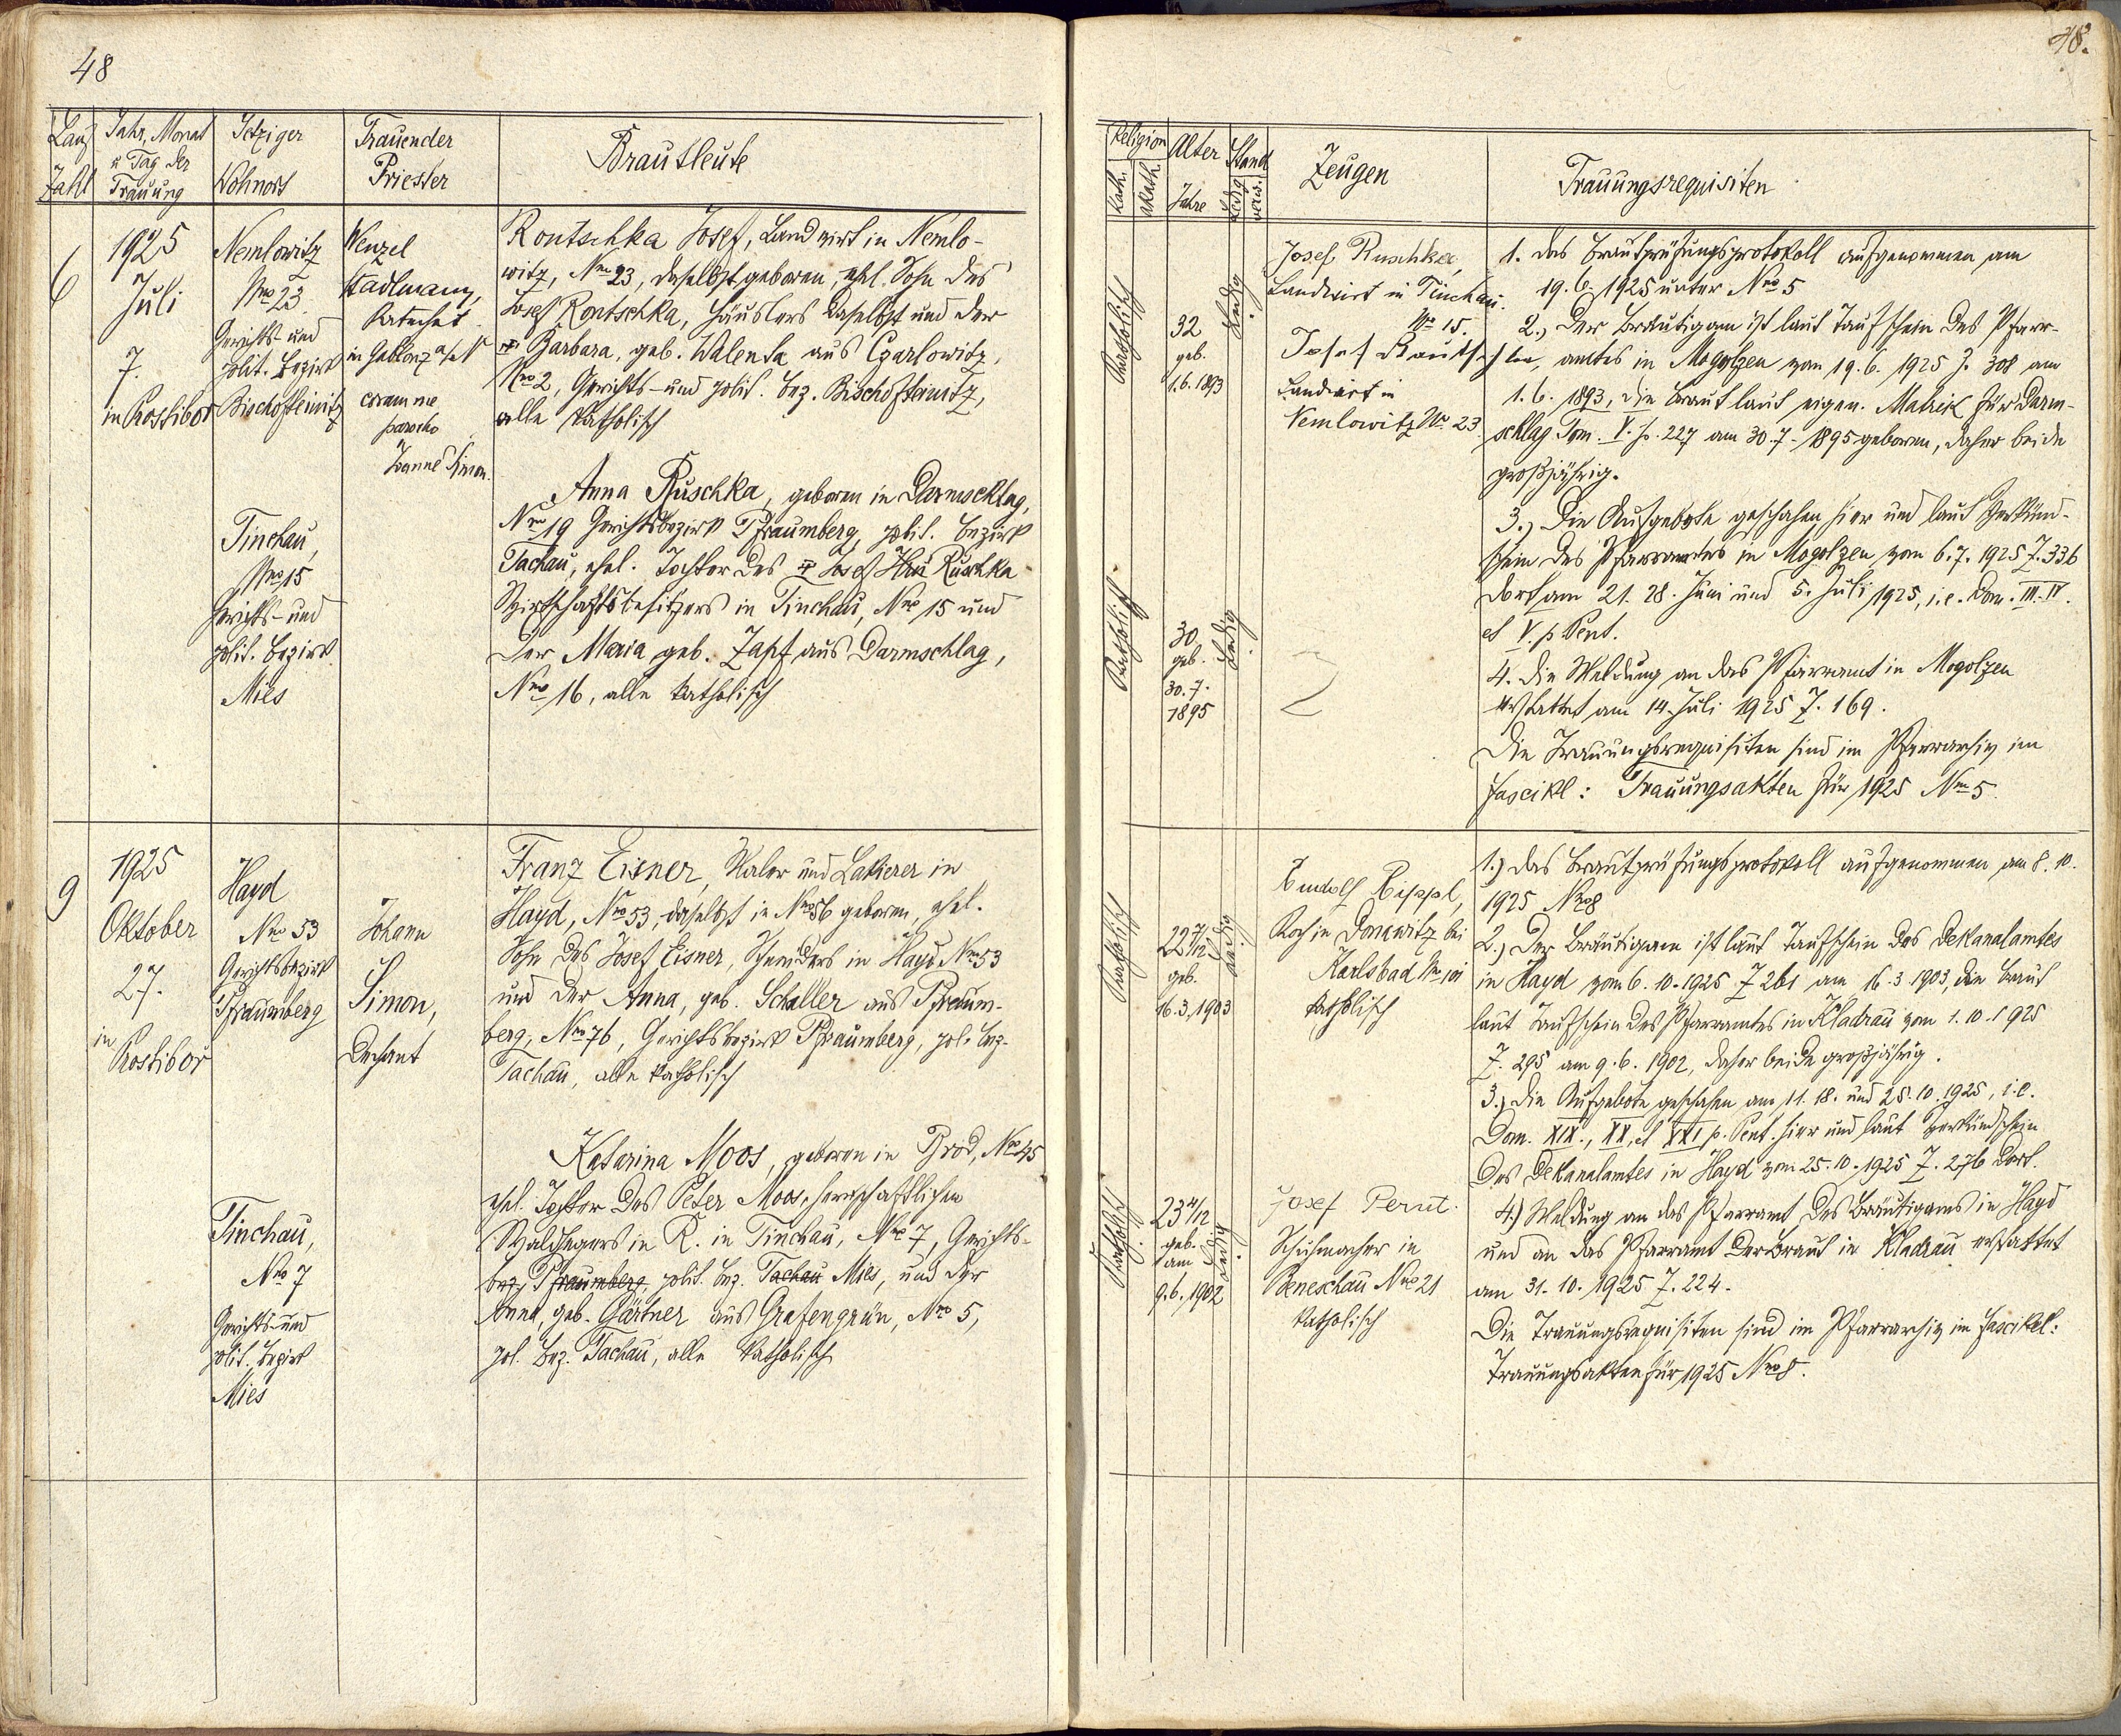 48
48.
Lauf Zahl
Jahr, Monat u Tag der Trauung
Jetziger Wohnort
Trauender Priester
Brautleute
Religion
Kath.
Akath.
Alter
Jahre
Stand
Ledig
verw.
Zeugen
Trauungsrequisiten
6
1925
Juli
7.
in Kostibor
Nemlowitz
Nro 23.
Gerichts- und
polit. Bezirk
Bischofteinitz
Wenzel
Stadlmann,
Katechet
in Gablonz a/N
coram me
parocho
Joanne Simon.
Rontschka Josef, Landwirt in Nemlo-
witz, Nro 23, daselbst geboren, ehel. Sohn des
Josef Rontschka, Häuslers daselbst und der
Barbara, geb. Walenta aus Czarlowitz,
Nro 2, Gerichts- und polit. Bez. Bischofteinitz,
alle katholisch
Tinchau,
Nro 15
Gerichts- und
polit. Bezirk
Mies
Anna Ruschka, geboren in Darmschlag,
Nro 19 Gerichtsbezirk Pfraumberg, polit. Bezirk
Tachau, ehel. Tochter des Josef Ruschka
Wirtschaftsbesitzers in Tinchau, Nro 15 und
der Maria geb. Zapf aus Darmschlag,
Nro 16, alle katholisch
Katholisch
32
geb.
1.6.1893
Ledig
Josef Ruschka,
Landwirt in Tinchau
No 15.
Josef Rontschka,
Landwirt in
Nemlowitz No 23
Katholisch
30
geb.
30.7.
1895
Ledig
1. das Brautprüfungsprotokoll aufgenommen am
19.6.1925 unter Nro 5
2.) Der Bräutigam ist laut Taufschein des Pfarr-
amtes in Mogolzen vom 19.6.1925 Z. 308 am
1.6. 1893, die Braut laut eigen. Matrik für Darm-
schlag Tom. V. fo. 227 am 30.7.1895 geboren, daher beide
großjährig.
3.) Die Aufgebote geschahen hier und laut Verkünd-
schein des Pfarramtes in Mogolzen vom 6.7.1925 Z. 336
dort am 21. 28. Juni und 5. Juli 1925, i.e. Dom. III. IV.
et V. p Pent.
4. Die Meldung an das Pfarramt in Mogolzen
erstattet am 14. Juli 1925 Z. 169.
Die Trauungsrequisiten sind im Pfarrarchiv im
Fascikl: Trauungsakten für 1925 Nro 5.
9
1925
Oktober
27.
in
Kostibor
Hayd
Nro 53
Gerichtsbezirk
Pfraumberg
Johann
Simon,
Dechant
Franz Eisner, Maler und Lakierer in
Hayd, Nro 53, daselbst in Nro 56 geboren, ehel.
Sohn des Josef Eisner, Schneiders in Hayd Nro 53
und der Anna, geb. Schaller aus Pfraum-
berg, Nro 76, Gerichtsbezirk Pfraumberg, pol. Bez.
Tachau, alle katholisch
Tinchau,
Nro 7
Gerichts- und
polit. Bezirk
Mies
Katarina Moos, geboren in Brod, Nro 45
ehel. Tochter des Peter Moos, herrschaftlichen
Waldhegers in R. in Tinchau, Nro 7, Gerichts-
bez. Pfraumberg, polit. Bez. Tachau Mies, und der
Anna, geb. Gärtner aus Grafengrün, Nro 5,
pol. Bez. Tachau, alle katholisch
Katholisch
22 7/12
geb.
16.3.1903
Ledig
Rudolf Rippl,
Koch in Donawitz bei
Karlsbad No 101
katholisch
Katholisch
23 4/12
geb.
am
9.6.1902
Ledig
Josef Perut.
Schuhmacher in
Beneschau Nro 21
katholisch
1.) Das Brautprüfungsprotokoll aufgenommen am 8. 10.
1925 Nro 8
2.) Der Bräutigam ist laut Taufschein des Dekanalamtes
in Hayd vom 6.10.1925 Z 261 am 16.3 1903, die Braut
laut Taufschein des Pfarramtes in Kladrau vom 1.10.1925
Z. 295 am 9.6.1902, daher beide großjährig.
3.) Die Aufgebote geschahen am 11. 18. und 25.10.1925, i.e.
Dom. XIX., XX, et XXI p. Pent. hier und laut Verkündschein
des Dekanalamtes in Hayd vom 25.10.1925 Z. 276 dort.
4.) Meldung an das Pfarramt des Bräutigams in Hayd
und an das Pfarramt der Braut in Kladrau erstattet
am 31.10.1925 Z. 224.
Die Trauungsrequisiten sind im Pfarrarchiv im Fascikel:
Trauungsakten für 1925 Nro 8.